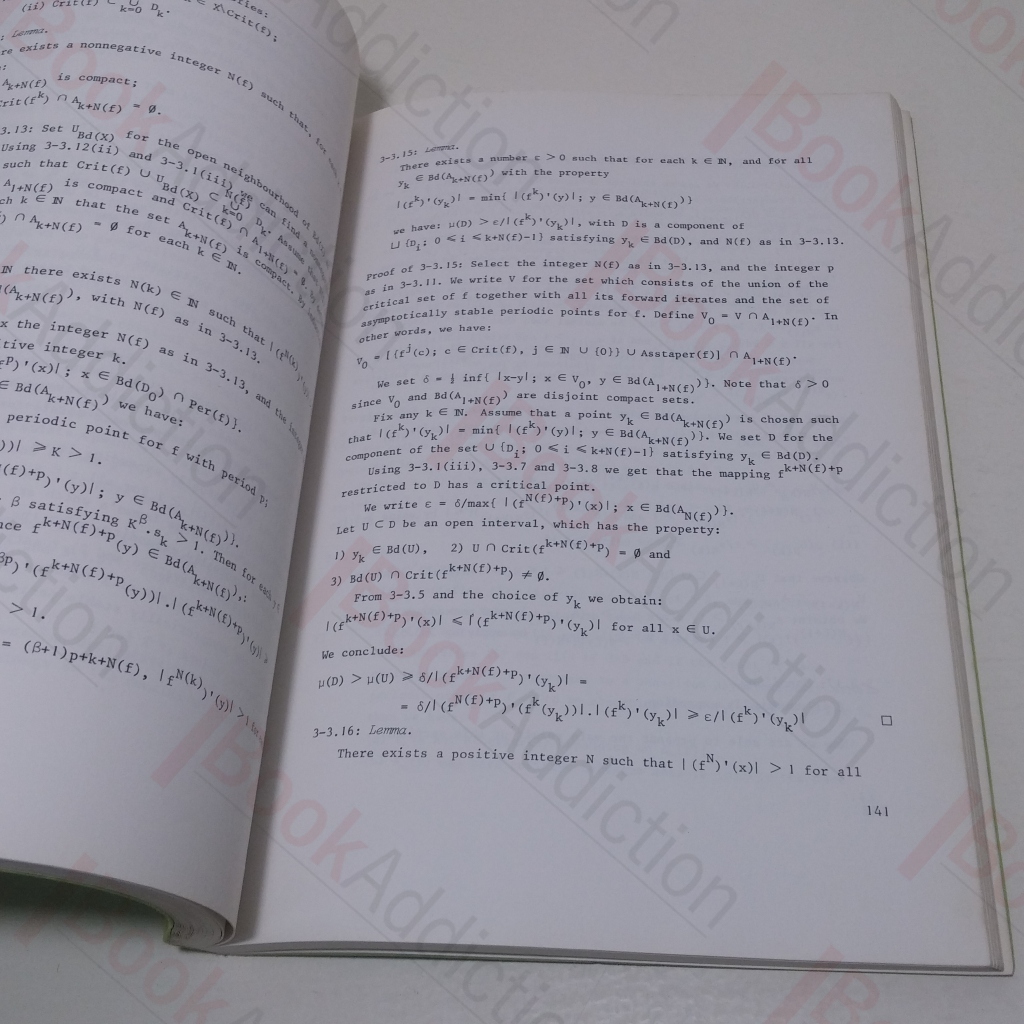 (ii) Crit(f) ⊂ ∪ D_k.
k=0
X\Crit(f);
: Lemma.
re exists a nonnegative integer N(f) such that, for
A_{k+N(f)} is compact;
Crit(f^k) ∩ A_{k+N(f)} = Ø.
3.13: Set U_{Bd(X)} for the open neighbourhood of
Using 3-3.12(ii) and 3-3.1(iii) we can find a
such that Crit(f) ∪ U_{Bd(X)} ⊂ ∪ D_k. Assume
A_{1+N(f)} is compact and Crit(f) ∩ A_{1+N(f)} = Ø,
k ∈ ℕ that the set A_{k+N(f)} is compact. By
∩ A_{k+N(f)} = Ø for each k ∈ ℕ.
ℕ there exists N(k) ∈ ℕ such that |(f^{N(k)})'
(A_{k+N(f)}), with N(f) as in 3-3.13.
x the integer N(f) as in 3-3.13, and the
tive integer k.
f^p)'(x)|; x ∈ Bd(D_0) ∩ Per(f)}.
∈ Bd(A_{k+N(f)}) we have:
periodic point for f with period p;
))| ⩾ K > 1.
(f)+p)'(y)|; y ∈ Bd(A_{k+N(f)})}.
β satisfying K^β.s_k > 1. Then for each
nce f^{k+N(f)+p}(y) ∈ Bd(A_{k+N(f)}),:
βp)'(f^{k+N(f)+p}(y))|.|(f^{k+N(f)+p})'(y)|
> 1.
= (β+1)p+k+N(f), |f^{N(k)})'(y)| > 1
3-3.15: Lemma.
There exists a number ε > 0 such that for each k ∈ ℕ, and for all
y_k ∈ Bd(A_{k+N(f)}) with the property
|(f^k)'(y_k)| = min{ |(f^k)'(y)|; y ∈ Bd(A_{k+N(f)})}
we have: μ(D) > ε/|(f^k)'(y_k)|, with D is a component of
∪ {D_i; 0 ⩽ i ⩽ k+N(f)-1} satisfying y_k ∈ Bd(D), and N(f) as in 3-3.13.
Proof of 3-3.15: Select the integer N(f) as in 3-3.13, and the integer p
as in 3-3.11. We write V for the set which consists of the union of the
critical set of f together with all its forward iterates and the set of
asymptotically stable periodic points for f. Define V_0 = V ∩ A_{1+N(f)}. In
other words, we have:
V_0 = [{f^j(c); c ∈ Crit(f), j ∈ ℕ ∪ {0}} ∪ Asstaper(f)] ∩ A_{1+N(f)}.
We set δ = ½ inf{ |x-y|; x ∈ V_0, y ∈ Bd(A_{1+N(f)})}. Note that δ > 0
since V_0 and Bd(A_{1+N(f)}) are disjoint compact sets.
Fix any k ∈ ℕ. Assume that a point y_k ∈ Bd(A_{k+N(f)}) is chosen such
that |(f^k)'(y_k)| = min{ |(f^k)'(y)|; y ∈ Bd(A_{k+N(f)})}. We set D for the
component of the set ∪ {D_i; 0 ⩽ i ⩽ k+N(f)-1} satisfying y_k ∈ Bd(D).
Using 3-3.1(iii), 3-3.7 and 3-3.8 we get that the mapping f^{k+N(f)+p}
restricted to D has a critical point.
We write ε = δ/max{ |(f^{N(f)+p})'(x)|; x ∈ Bd(A_{N(f)})}.
Let U ⊂ D be an open interval, which has the property:
1) y_k ∈ Bd(U), 2) U ∩ Crit(f^{k+N(f)+p}) = Ø and
3) Bd(U) ∩ Crit(f^{k+N(f)+p}) ≠ Ø.
From 3-3.5 and the choice of y_k we obtain:
|(f^{k+N(f)+p})'(x)| ⩽ |(f^{k+N(f)+p})'(y_k)| for all x ∈ U.
We conclude:
μ(D) > μ(U) ⩾ δ/|(f^{k+N(f)+p})'(y_k)| =
= δ/|(f^{N(f)+p})'(f^k(y_k))|.|(f^k)'(y_k)| ⩾ ε/|(f^k)'(y_k)| □
3-3.16: Lemma.
There exists a positive integer N such that |(f^N)'(x)| > 1 for all
141
BookAddiction